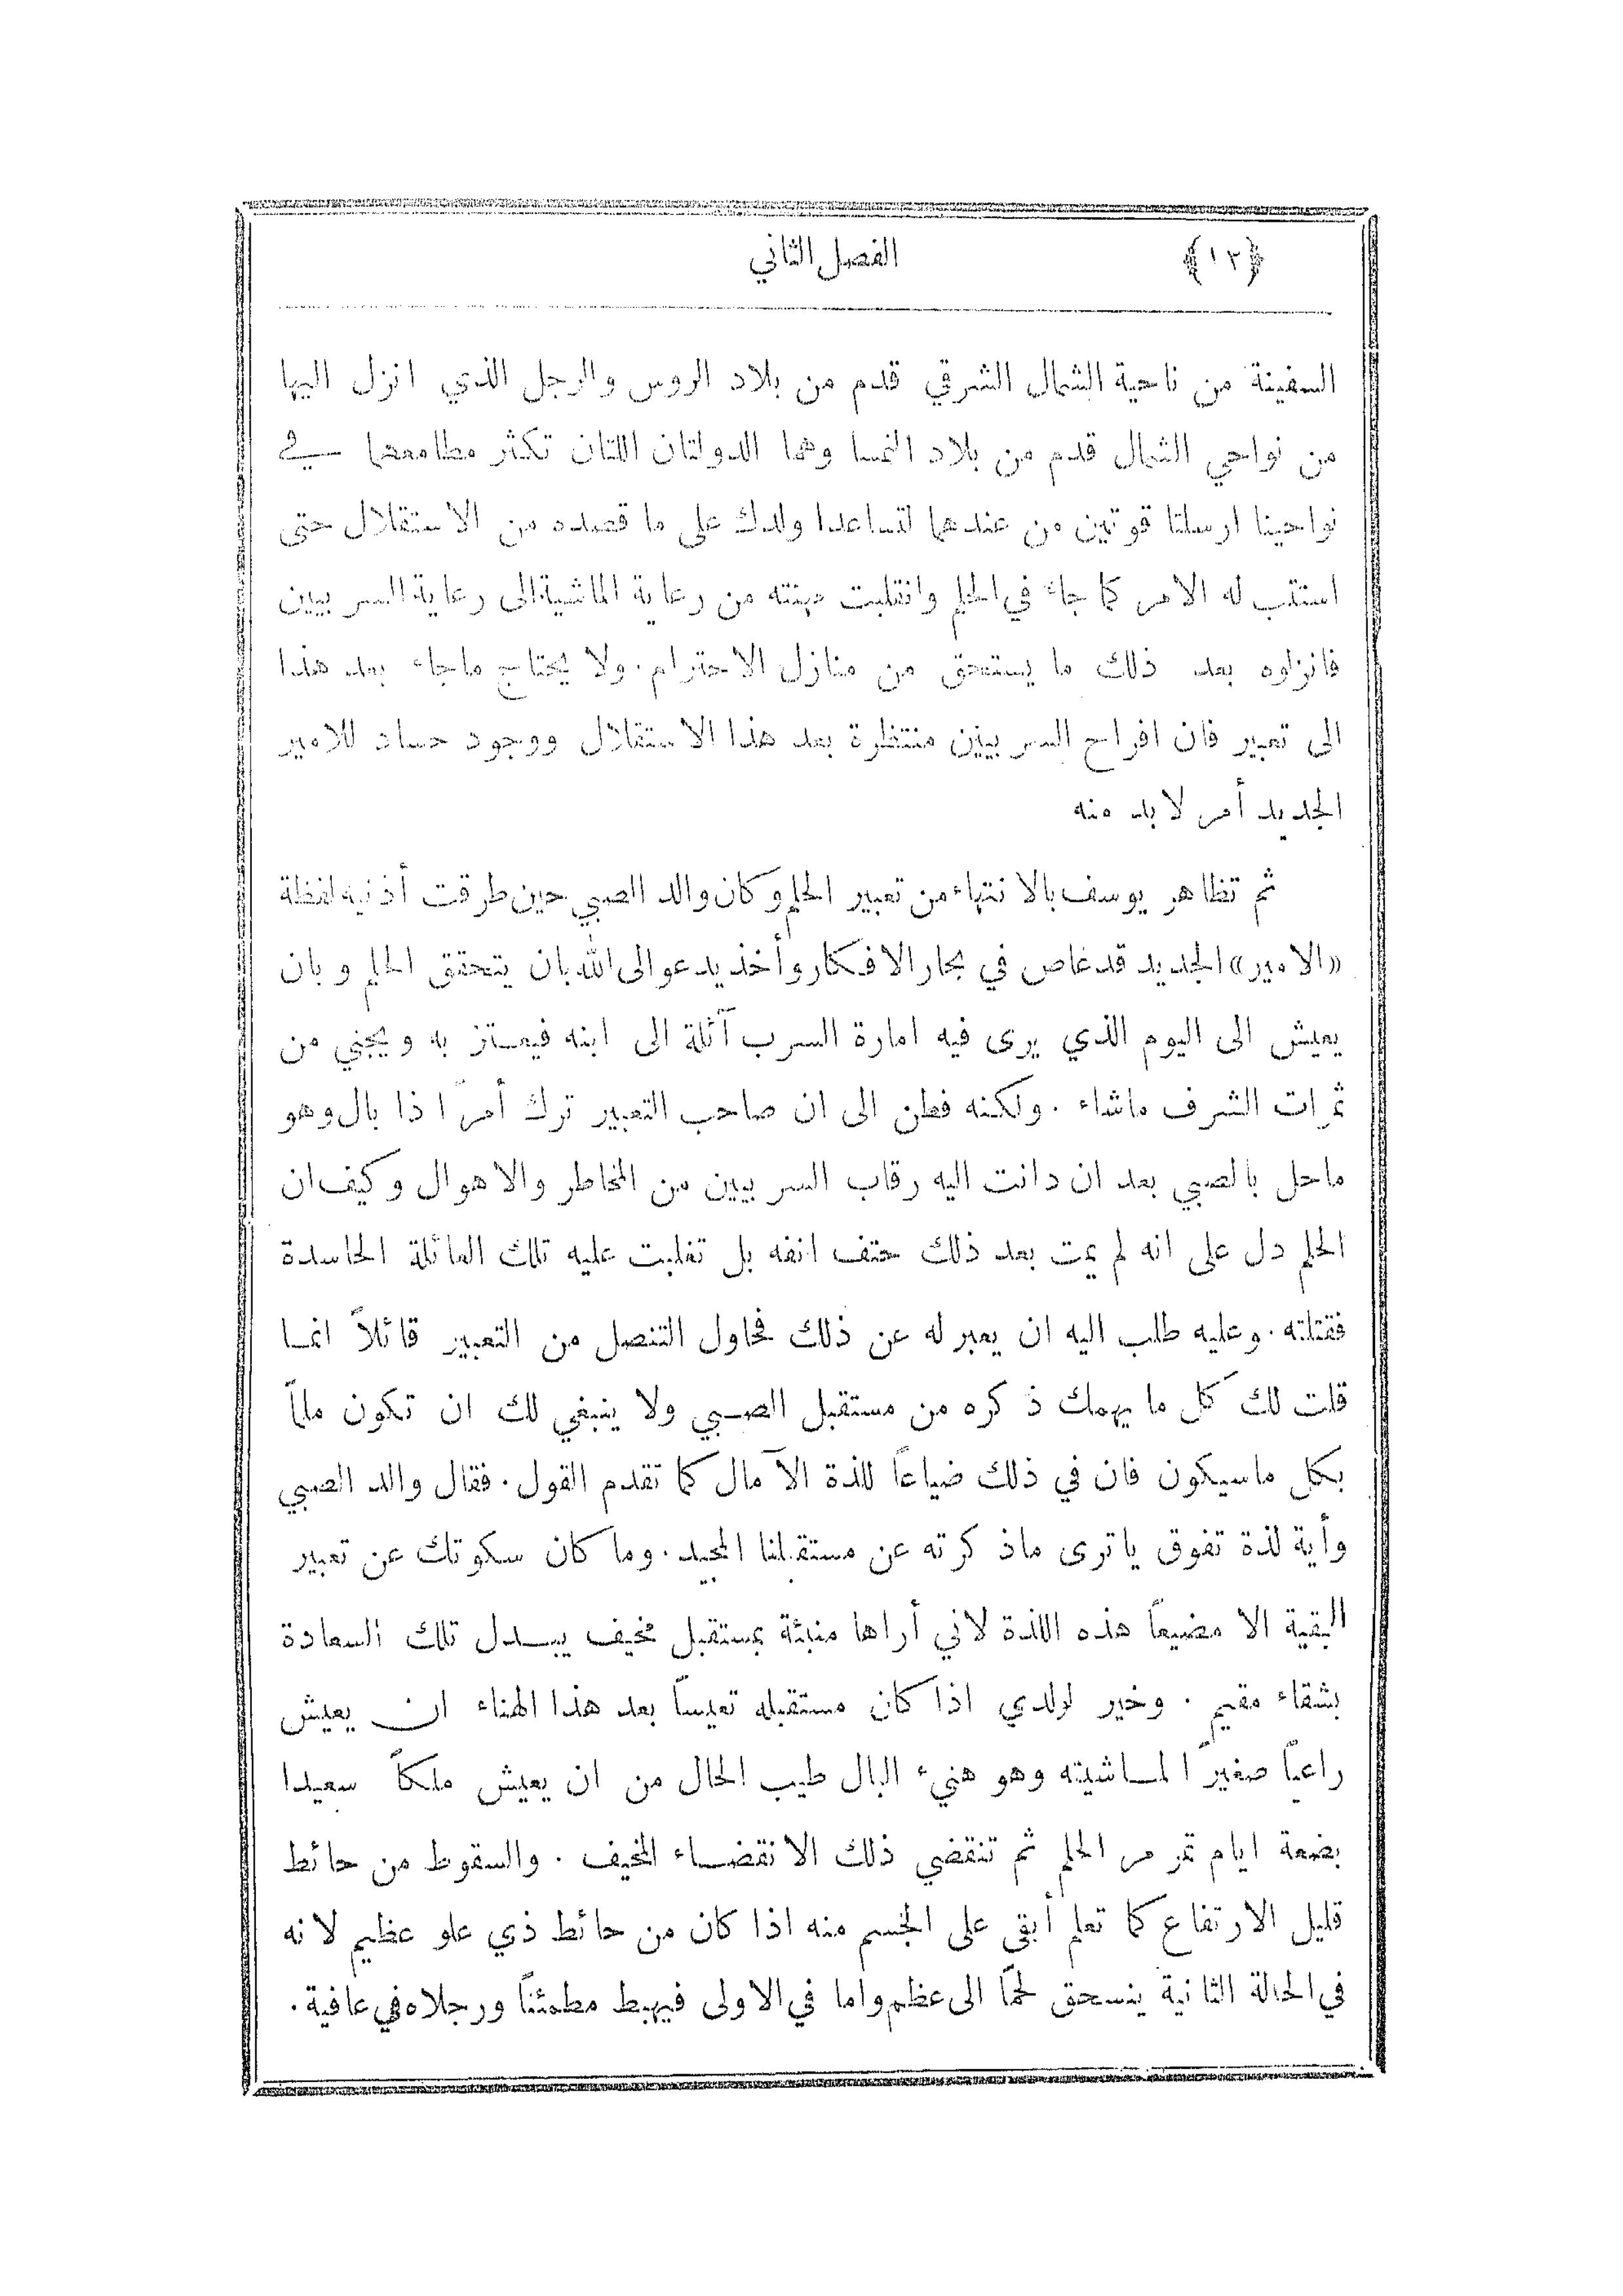 ﴿١٢﴾ الفصل الثاني
السفينة من ناحية الشمال الشرقي قدم من بلاد الروس والرجل الذي انزل اليها
من نواحي الشمال قدم من بلاد النمسا وهما الدولتان اللتان تكثر مطامعهما في
نواحينا ارسلتا قوتين من عندهما لتساعدا ولدك على ما قصده من الاستقلال حتى
استتب له الامر كما جاء في الحلم وانقلبت مهنته من رعاية الماشية الى رعاية السربيين
فانزلوه بعد ذلك ما يستحق من منازل الاحترام. ولا يحتاج ماجاء بعد هذا
الى تعبير فان افراح السربيين منتظرة بعد هذا الاستقلال ووجود حساد للامير
الجديد أمر لابد منه
ثم تظاهر يوسف بالانتهاء من تعبير الحلم وكان والد الصبي حين طرقت أذنيه لفظة
«الامير» الجديد قد غاص في بحار الافكار وأخذ يدعو الى الله بان يتحقق الحلم وبان
يعيش الى اليوم الذي يرى فيه امارة السرب آئلة الى ابنه فيعتز به ويجني من
ثمرات الشرف ماشاء. ولكنه فطن الى ان صاحب التعبير ترك أمرًا ذا بال وهو
ماحل بالصبي بعد ان دانت اليه رقاب السربيين من المخاطر والاهوال وكيف ان
الحلم دل على انه لم يمت بعد ذلك حتف انفه بل تغلبت عليه تلك العائلة الحاسدة
فقتلته. وعليه طلب اليه ان يعبر له عن ذلك فحاول التنصل من التعبير قائلاً انما
قلت لك كل ما يهمك ذكره من مستقبل الصبي ولا ينبغي لك ان تكون ملمًا
بكل ماسيكون فان في ذلك ضياعًا للذة الآمال كما تقدم القول. فقال والد الصبي
وأية لذة تفوق ياترى ماذكرته عن مستقبلنا المجيد. وما كان سكوتك عن تعبير
البقية الا مضيعًا هذه اللذة لاني أراها منبئة بمستقبل مخيف يبدل تلك السعادة
بشقاء مقيم. وخير لولدي اذا كان مستقبله تعيسًا بعد هذا الهناء ان يعيش
راعيًا صغيرًا لماشيته وهو هنيء البال طيب الحال من ان يعيش ملكًا سعيدا
بضعة ايام تمر مر الحلم ثم تنقضي ذلك الانقضاء المخيف. والسقوط من حائط
قليل الارتفاع كما تعلم أبقى على الجسم منه اذا كان من حائط ذي علو عظيم لانه
في الحالة الثانية ينسحق لحمًا الى عظم واما في الاولى فيهبط مطمئنًا ورجلاه في عافية.